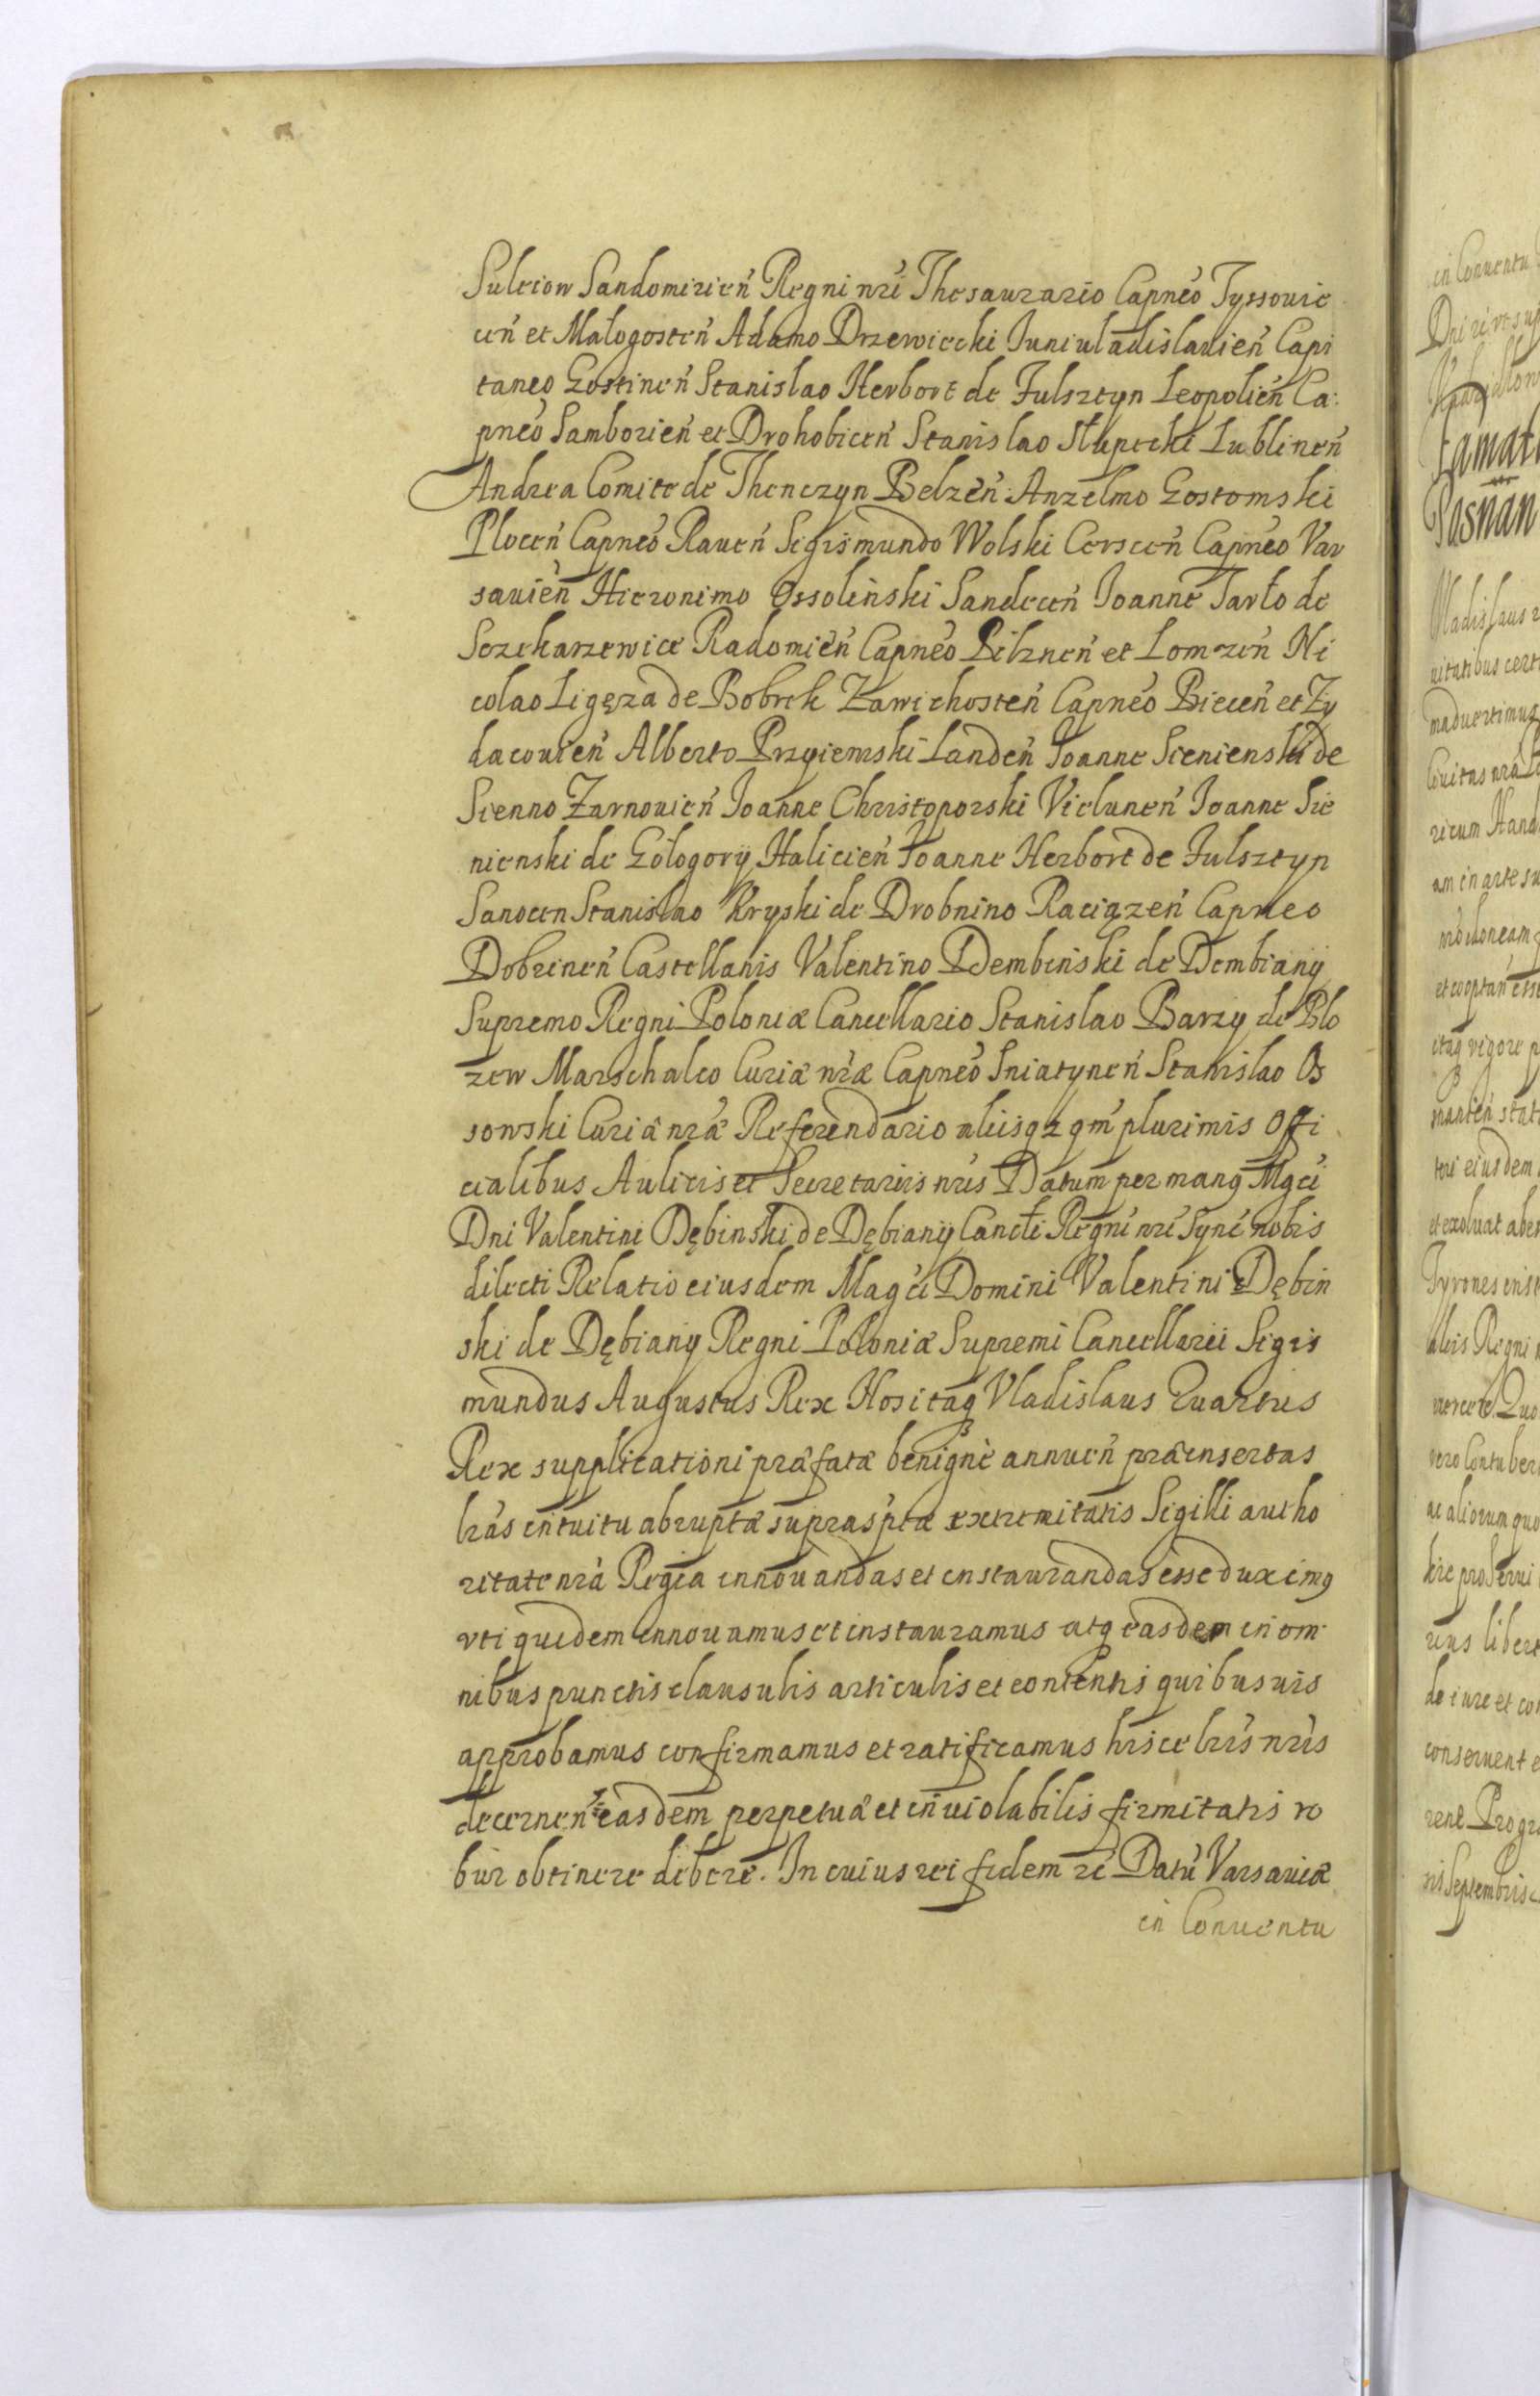 Sulciow Sandomirień Regni nri Thesaurario Capneo Tyssouie
ceń et Małogosteń Adamo Drzewiecki Iuniuladislauień Capi
taneo Gostineń Stanislao Herbort de Fulsztyn Leopolień Ca:
pneo Samborień et Drohobiceń Stanislao Słupecki Lublineń
Andrea Comite de Thenczyn Belzeń Anzelmo Gostomski
Ploceń Capneo Raueń Sigismundo Wolski Cersceń Capneo Var
sauień Hieronimo Ossolinski Sandeceń Joanne Tarło de
Sczekarzewice Radomień Capneo Pilzneń et Lomzeń Ni
colao Ligęza de Bobrek Zawichosteń Capneo Bieceń et Zy
dacouień Alberto Przyiemski Landeń Joanne Sienienski de
Sienno Zarnouień Joanne Christoporski Vieluneń Joanne Sie
nienski de Gologory Halicień Joanne Herbort de Fulsztyn
Sanocen Stanislao Kryski de Drobnino Raciązeń Capneo
Dobrineń Castellanis Valentino Dembinski de Dembiany
Supremo Regni Poloniæ Cancellario Stanislao Barzy de Blo
zew Marschalco Curiæ nræ Capneo Sniatyneń Stanislao Os
sowski Curiæ nræ Referendario alijsqz qm plurimis Offi
cialibus Aulicis et Secretariis nris Datum per mang Mgci
Dni Valentini Dębinski de Dębiany Cancłi Regni nri Synė nobis
dilecti Relatio eiusdem Magci Domini Valentini Dębin
ski de Dębiany Regni Poloniæ Supremi Cancellarii Sigis
mundus Augustus Rex Nos itaq Vladislaus Quartus
Rex supplicationi præfatæ benignè annueń præinsertas
lras intuitu abruptæ supraspta extremitatis Sigilli autho
ritate nra Regia innouandas et instaurandas esse duximg
vti quidem innouamus et instauramus atq easdem in om
nibus punctis clausulis articulis et contentis quibusuis
approbamus confirmamus et ratificamus hisce lris nris
decerneń easdem perpetuæ et inuiolabilis firmitatis ro
bur obtinere debere. In cuius rei fidem rė Datu Varsauiæ
in Conuentu